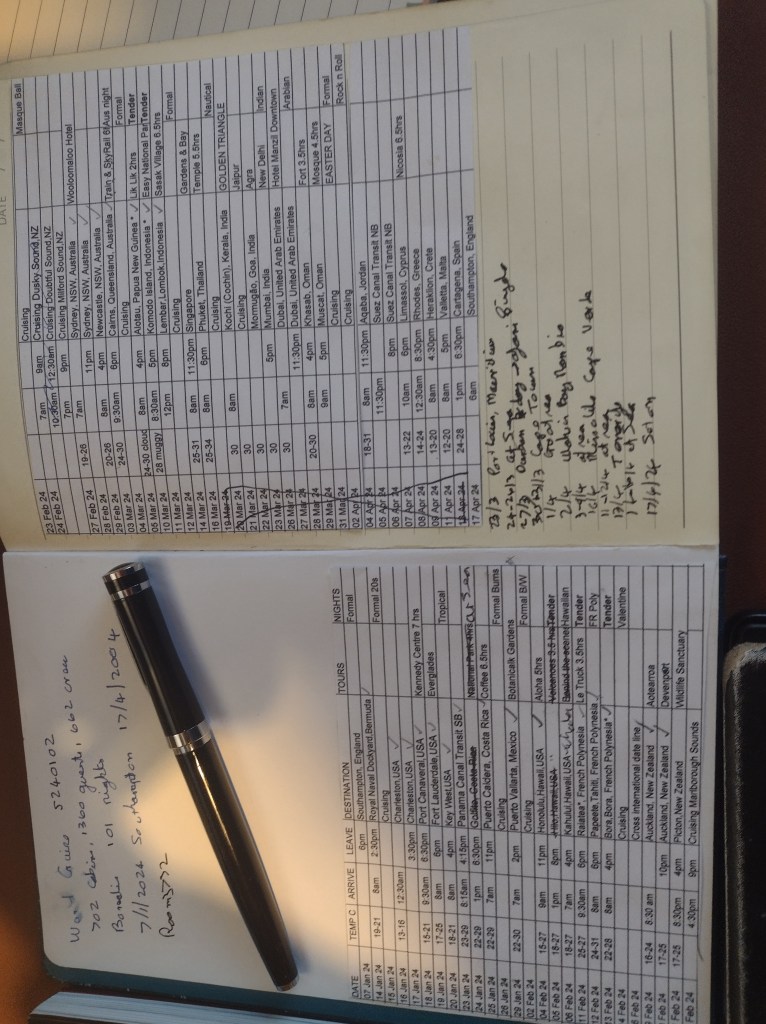 World Cruise 5240102
702 cabins, 1360 guests, 662 crew
Borealis 101 nights
7/1/2024 Southampton 17/4/2004
DATE TEMP C ARRIVE LEAVE DESTINATION TOURS NIGHTS
07 Jan 24 6pm Southampton, England Formal
14 Jan 24 19-21 8am 2:30pm Royal Naval Dockyard,Bermuda Formal 20s
15 Jan 24 Cruising
16 Jan 24 13-16 12:30am Charleston,USA
17 Jan 24 3:30pm Charleston,USA
18 Jan 24 15-21 9:30am 6:30pm Port Canaveral,USA Kennedy Centre 7 hrs
19 Jan 24 17-25 8am 6pm Fort Lauderdale,USA Everglades Tropical
20 Jan 24 18-21 8am 4pm Key West,USA
23 Jan 24 23-29 8:15am 4:15pm Panama Canal Transit SB
24 Jan 24 22-29 1pm 6:30pm Costa Rica National Park 4hrs At Sea
25 Jan 24 22-29 7am 11pm Puerto Caldera, Costa Rica Coffee 6.5hrs
28 Jan 24 Cruising Formal Burns
29 Jan 24 22-30 7am 2pm Puerto Vallarta, Mexico Botanicalk Gardens
02 Feb 24 Cruising Formal B/W
04 Feb 24 15-27 9am 11pm Honolulu,Hawaii,USA Aloha 5hrs
05 Feb 24 18-27 1pm 8pm Hilo,Hawaii,USA Volcanoes 3.5 hrs Tender
06 Feb 24 18-27 7am 4pm Kahului,Hawaii,USA Behind the scenes Hawaiian
11 Feb 24 25-27 9:30am 6pm Raiatea*, French Polynesia Le Truck 3.5hrs Tender
12 Feb 24 24-31 8am 6pm Papeete, Tahiti, French Polynesia FR Poly
13 Feb 24 22-28 8am 4pm Bora,Bora, French Polynesia* Tender
14 Feb 24 Cruising Valentine
Feb 24 Cross international date line
Feb 24 16-24 8:30 am Auckland, New Zealand Aotearroa
Feb 24 17-25 10pm Auckland, New Zealand Devenport
Feb 24 17-25 8:30pm 4pm Picton,New Zealand Wildlife Sanctuary
Feb 24 4:30pm 9pm Cruising Marlborough Sounds
DATE
Cruising Masque Ball
23 Feb 24 7am 9am Cruising Dusky Sound,NZ
10:30am 12:30am Cruising Doubtful Sound,NZ
24 Feb 24 7pm 9pm Cruising Milford Sound,NZ
27 Feb 24 19-26 7am Sydney, NSW, Australia Wooloomaloo Hotel
11pm Sydney, NSW, Australia
28 Feb 24 20-26 8am 4pm Newcastle, NSW, Australia
29 Feb 24 24-30 9:30am 6pm Cairns, Queensland, Australia Train & SkyRail Aus night
03 Mar 24 Cruising Formal
04 Mar 24 24-30 cloud 8am 4pm Alotau, Papua New Guinea* Lik Lik 2hrs Tender
05 Mar 24 28 muggy 8:30am 5pm Komodo Island, Indonesia* Easy National Par Tender
10 Mar 24 12pm 8pm Lembar,Lombok,Indonesia Sasak Village 6.5hrs
11 Mar 24 Cruising Formal
12 Mar 24 25-31 8am 11:30pm Singapore Gardens & Bay
14 Mar 24 25-34 8am 6pm Phuket, Thailand Temple 5.5hrs
16 Mar 24 Cruising Nautical
19 Mar 24 30 8am Kochi (Cochin), Kerala, India GOLDEN TRIANGLE
20 Mar 24 30 Cruising Jaipur
21 Mar 24 30 Mormugão, Goa, India Agra
22 Mar 24 30 5pm Mumbai, India New Delhi Indian
23 Mar 24 30 7am Dubai, United Arab Emirates Hotel Manzil Downtown
26 Mar 24 11:30pm Dubai, United Arab Emirates Arabian
27 Mar 24 20-30 8am 4pm Khasab, Oman Fort 3.5hrs
28 Mar 24 9am 5pm Muscat, Oman Mosque 4.5hrs
29 Mar 24 Cruising EASTER DAY Formal
31 Mar 24 Cruising Rock n Roll
02 Apr 24
04 Apr 24 18-31 8am 11:30pm Aqaba, Jordan
05 Apr 24 11:30pm Suez Canal Transit NB
06 Apr 24 8pm Suez Canal Transit NB
07 Apr 24 13-22 10am 6pm Limassol, Cyprus Nicosia 6.5hrs
08 Apr 24 14-24 12:30am 8:30pm Rhodes, Greece
09 Apr 24 13-20 8am 4:30pm Heraklion, Crete
11 Apr 24 12-20 8am 5pm Valletta, Malta
13 Apr 24 24-28 1pm 6:30pm Cartagena, Spain
17 Apr 24 6am Southampton, England
23/3 Port Louis, Mauritius
24-26/3 at sea
27/3 Durban
Cape Town
1/4
2/4 Walvis Bay Namibia
at sea
Mindello Cape Verde
at sea
Tenerife
at sea
17/4/24 Soton